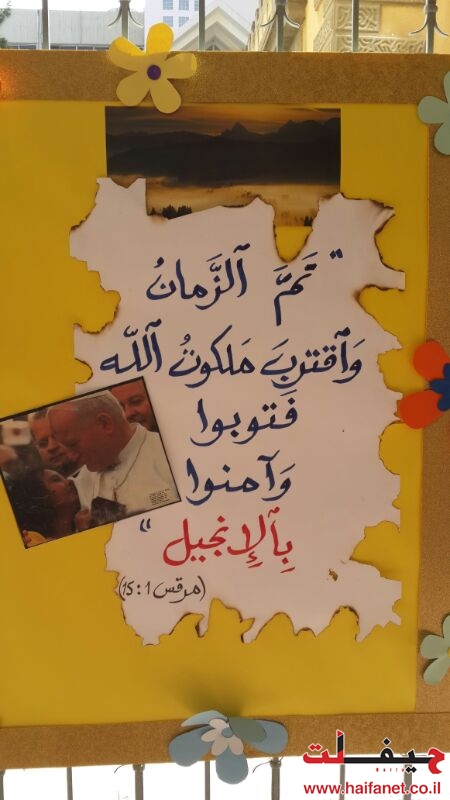 "تَمَّ ٱلزَّمانُ
وَٱقتربَ مَلكوتُ ٱللّه
فَتوبوا
وَآمنوا
بِٱلإِنجيل"
(مرقس 1: 15)
حيفانت
www.haifanet.co.il